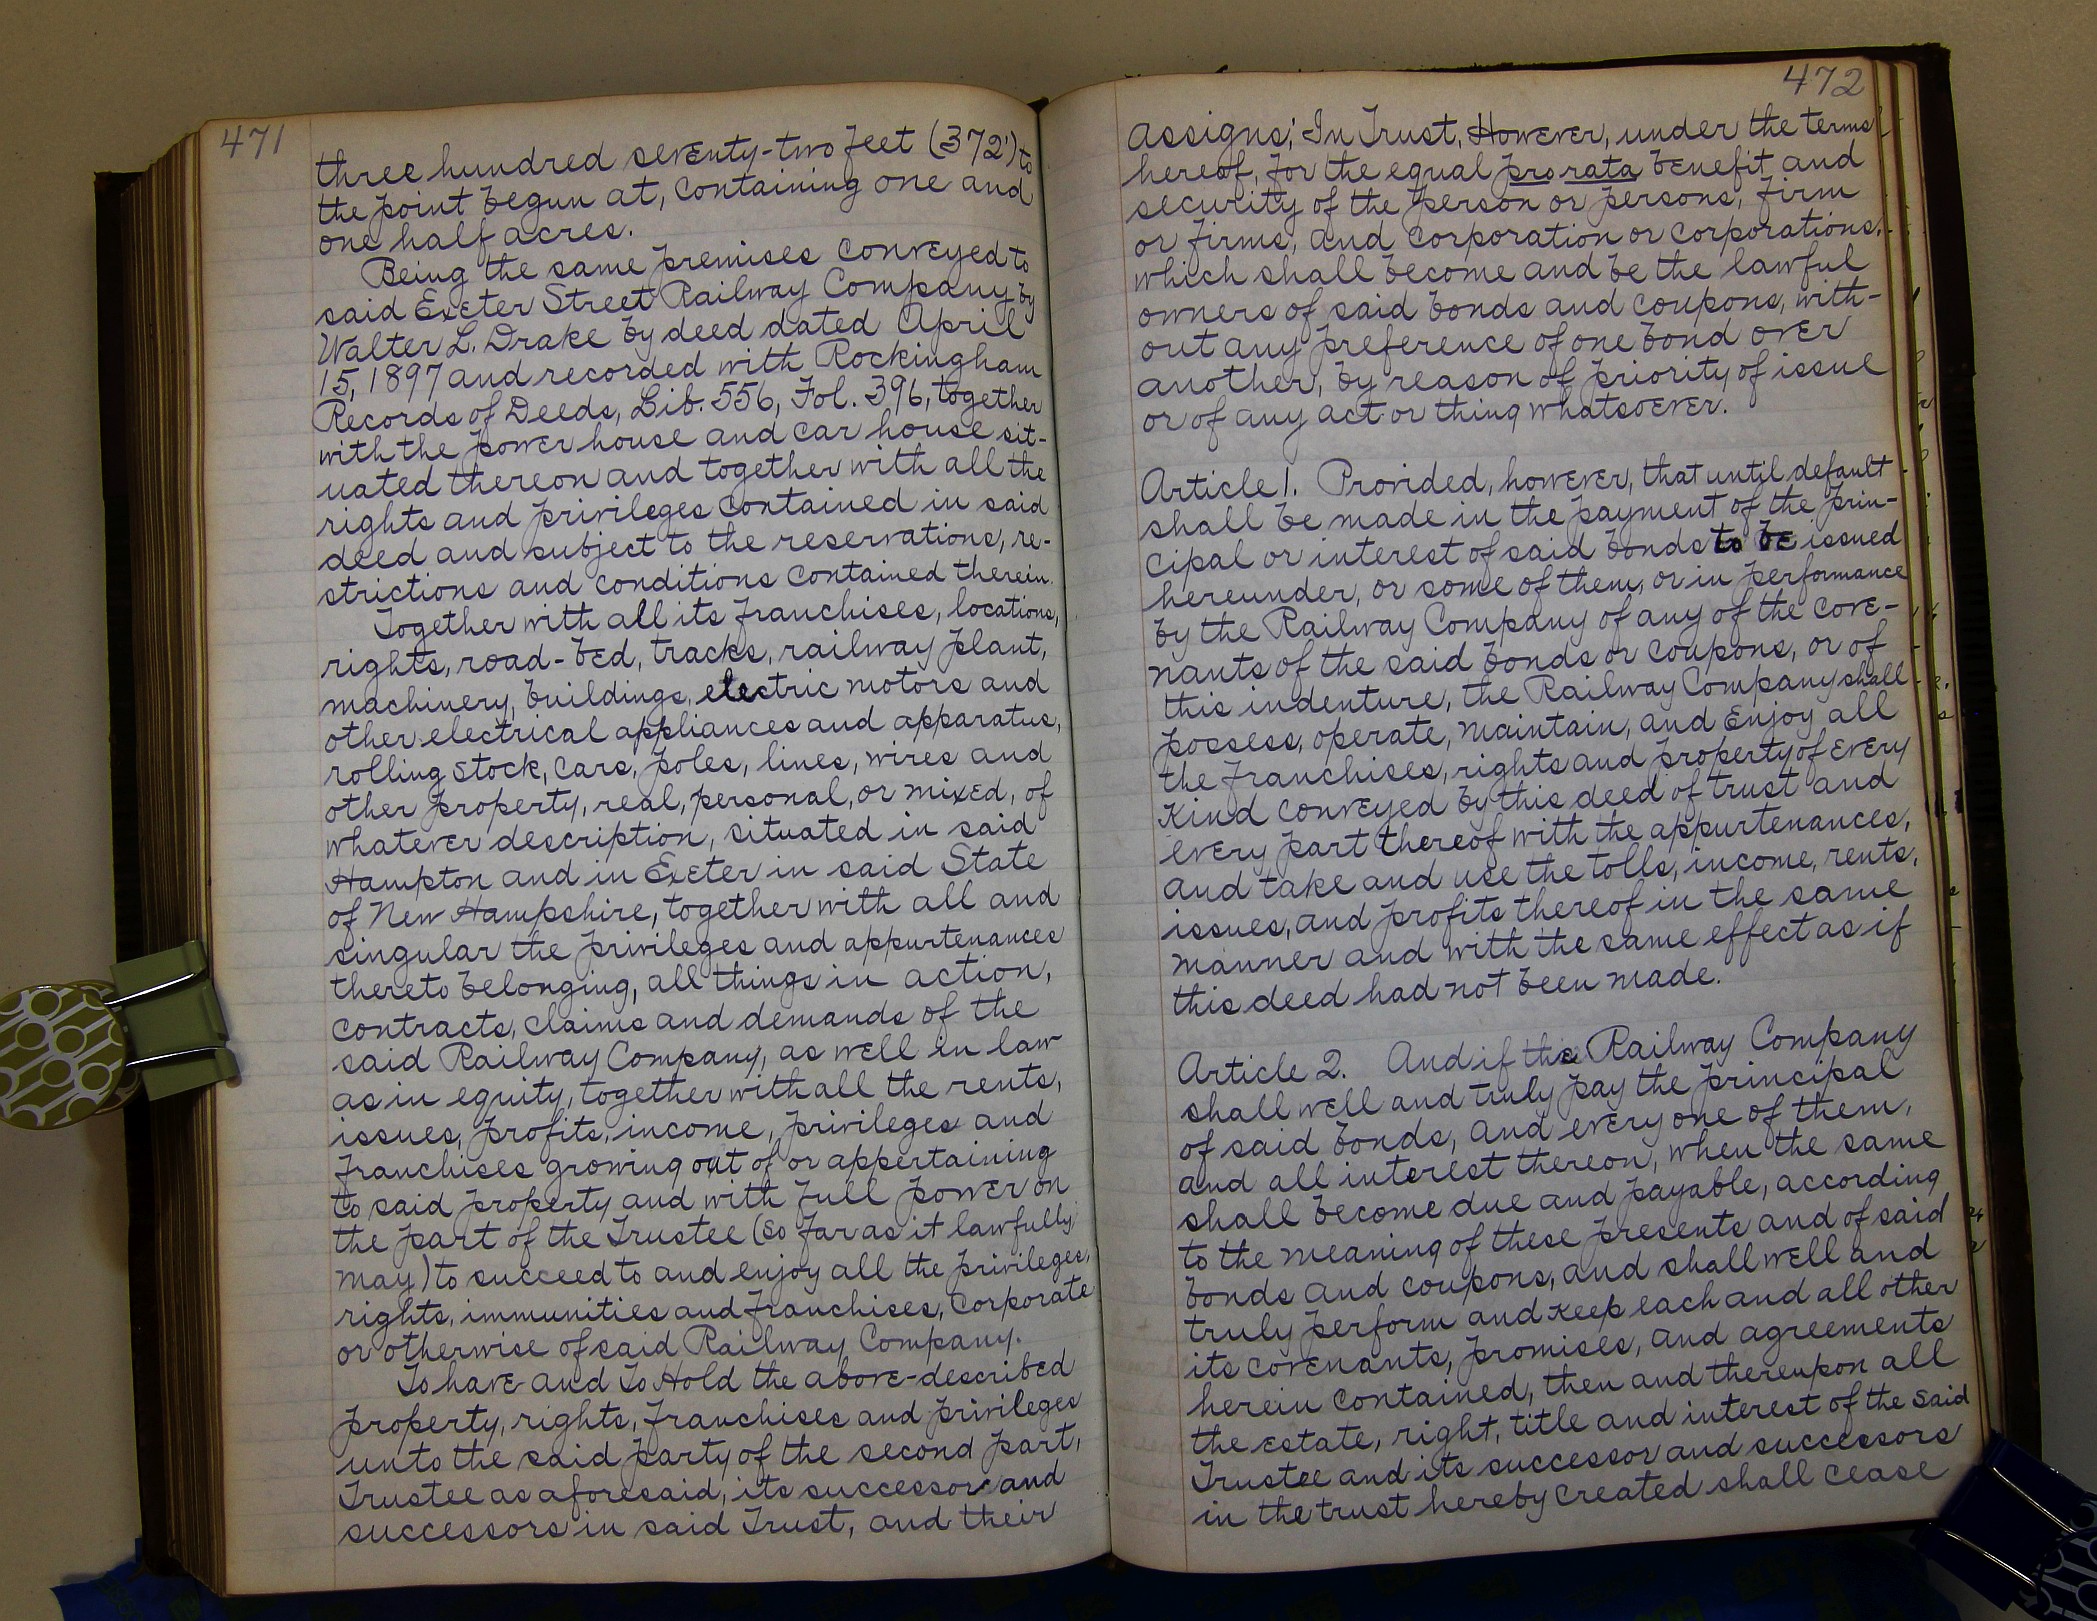 471
three hundred seventy-two feet (372') to
the point begun at, containing one and
one half acres.
Being the same premises conveyed to
said Exeter Street Railway Company by
Walter L. Drake by deed dated April
15, 1897 and recorded with Rockingham
Records of Deeds, Lib. 556, Fol. 396, together
with the power house and car house sit-
uated thereon and together with all the
rights and privileges contained in said
deed and subject to the reservations, re-
strictions and conditions contained therein.
Together with all its franchises, locations,
rights, road-bed, tracks, railway plant,
machinery, buildings, electric motors and
other electrical appliances and apparatus,
rolling stock, cars, poles, lines, wires and
other property, real, personal, or mixed, of
whatever description, situated in said
Hampton and in Exeter in said State
of New Hampshire, together with all and
singular the privileges and appurtenances
thereto belonging, all things in action,
contracts, claims and demands of the
said Railway Company, as well in law
as in equity, together with all the rents,
issues, profits, income, privileges and
franchises growing out of or appertaining
to said property and with full power on
the part of the Trustee (so far as it lawfully
may) to succeed to and enjoy all the privileges,
rights, immunities and franchises, corporate
or otherwise of said Railway Company.
To have and To Hold the above-described
property, rights, franchises and privileges
unto the said party of the second part,
Trustee as aforesaid, its successor and
successors in said Trust, and their
472
assigns; In Trust, However, under the terms
hereof, for the equal pro rata benefit and
security of the person or persons, firm
or firms, and corporation or corporations,
which shall become and be the lawful
owners of said bonds and coupons, with-
out any preference of one bond over
another, by reason of priority of issue
or of any act or thing whatsoever.
Article 1. Provided, however, that until default
shall be made in the payment of the prin-
cipal or interest of said bonds to be issued
hereunder, or some of them, or in performance
by the Railway Company of any of the cove-
nants of the said bonds or coupons, or of
this indenture, the Railway Company shall
possess, operate, maintain, and enjoy all
the franchises, rights and property of every
kind conveyed by this deed of trust and
every part thereof with the appurtenances,
and take and use the tolls, income, rents,
issues, and profits thereof in the same
manner and with the same effect as if
this deed had not been made.
Article 2. And if the Railway Company
shall well and truly pay the principal
of said bonds, and every one of them,
and all interest thereon, when the same
shall become due and payable, according
to the meaning of these presents and of said
bonds and coupons, and shall well and
truly perform and keep each and all other
its covenants, promises, and agreements
herein contained, then and thereupon all
the estate, right, title and interest of the said
Trustee and its successor and successors
in the trust hereby created shall cease